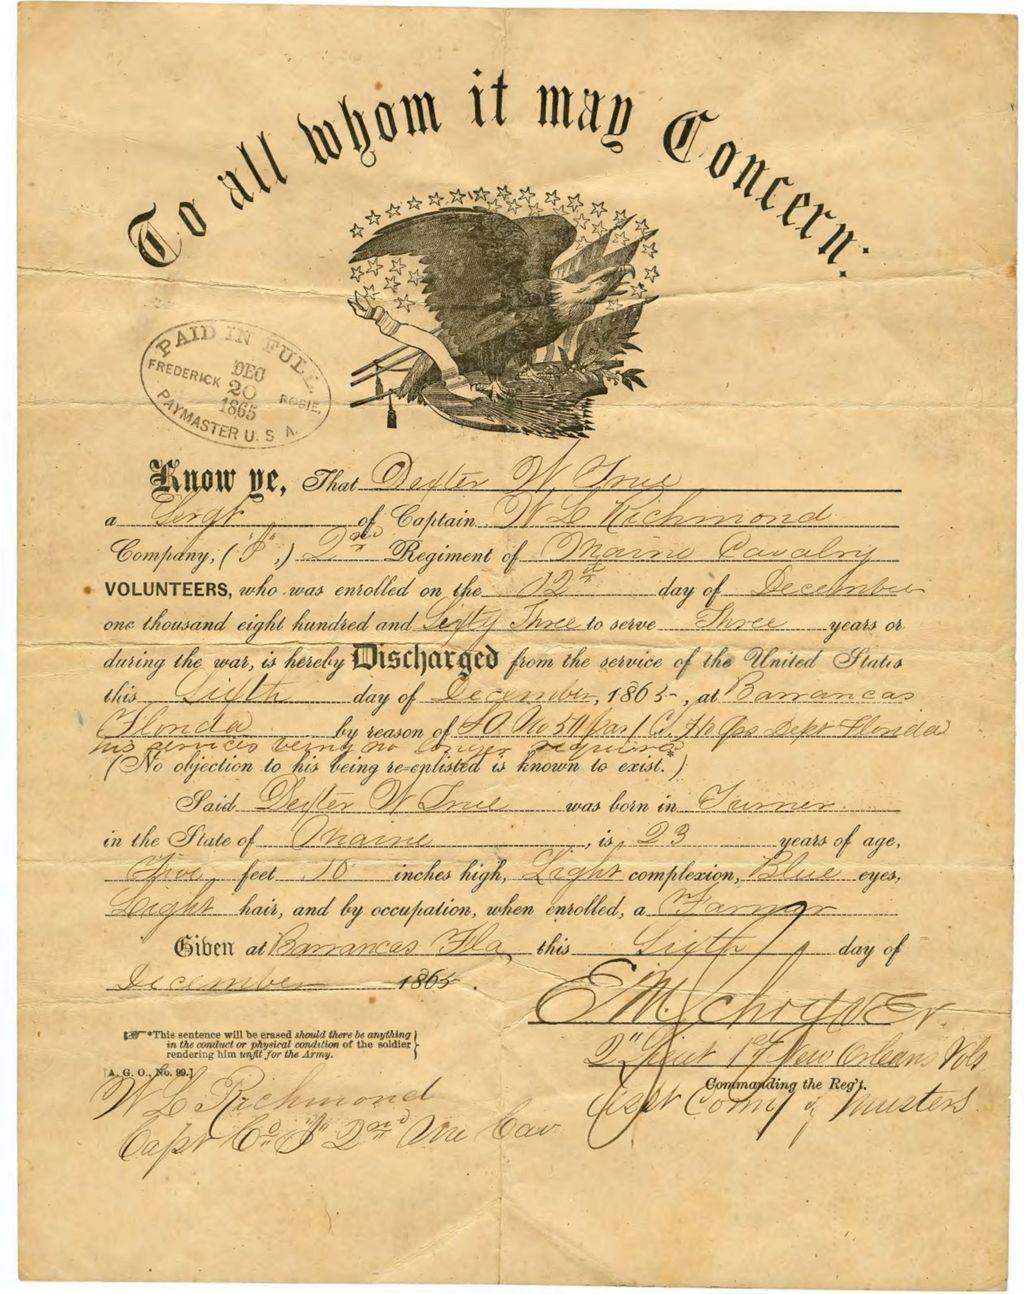 To all whom it may Concern:
PAID IN FULL
DEC
FREDERICK 20 ROBIE,
1865
PAYMASTER U. S. A.
Know ye, That Dexter W True
a Sergt of Captain W L Richmond
Company, ("I",) 2nd Regiment of Maine Cavalry
VOLUNTEERS, who was enrolled on the 12th day of December
one thousand eight hundred and Sixty Three to serve Three years or
during the war, is hereby Discharged from the service of the United States
this Sixth day of December, 1865, at Barrancas
Florida by reason of S.O. No Dept Florida
his services being no longer required
(No objection to his being re-enlisted is known to exist.*)
Said Dexter W True was born in Turner
in the State of Maine, is 23 years of age,
Five feet 10 inches high, Light complexion, Blue eyes,
Light hair, and by occupation, when enrolled, a Farmer
Given at Barrancas Fla, this Sixth day of
December 1865.
☞ *This sentence will be erased should there be anything
in the conduct or physical condition of the soldier
rendering him unfit for the Army.
[A. G. O., No. 99.]
W L Richmond
Capt Co "I" 2nd Me Cav
2" Lieut 1st New Orleans Vols
Commanding the Reg't.
Asst Com of Musters